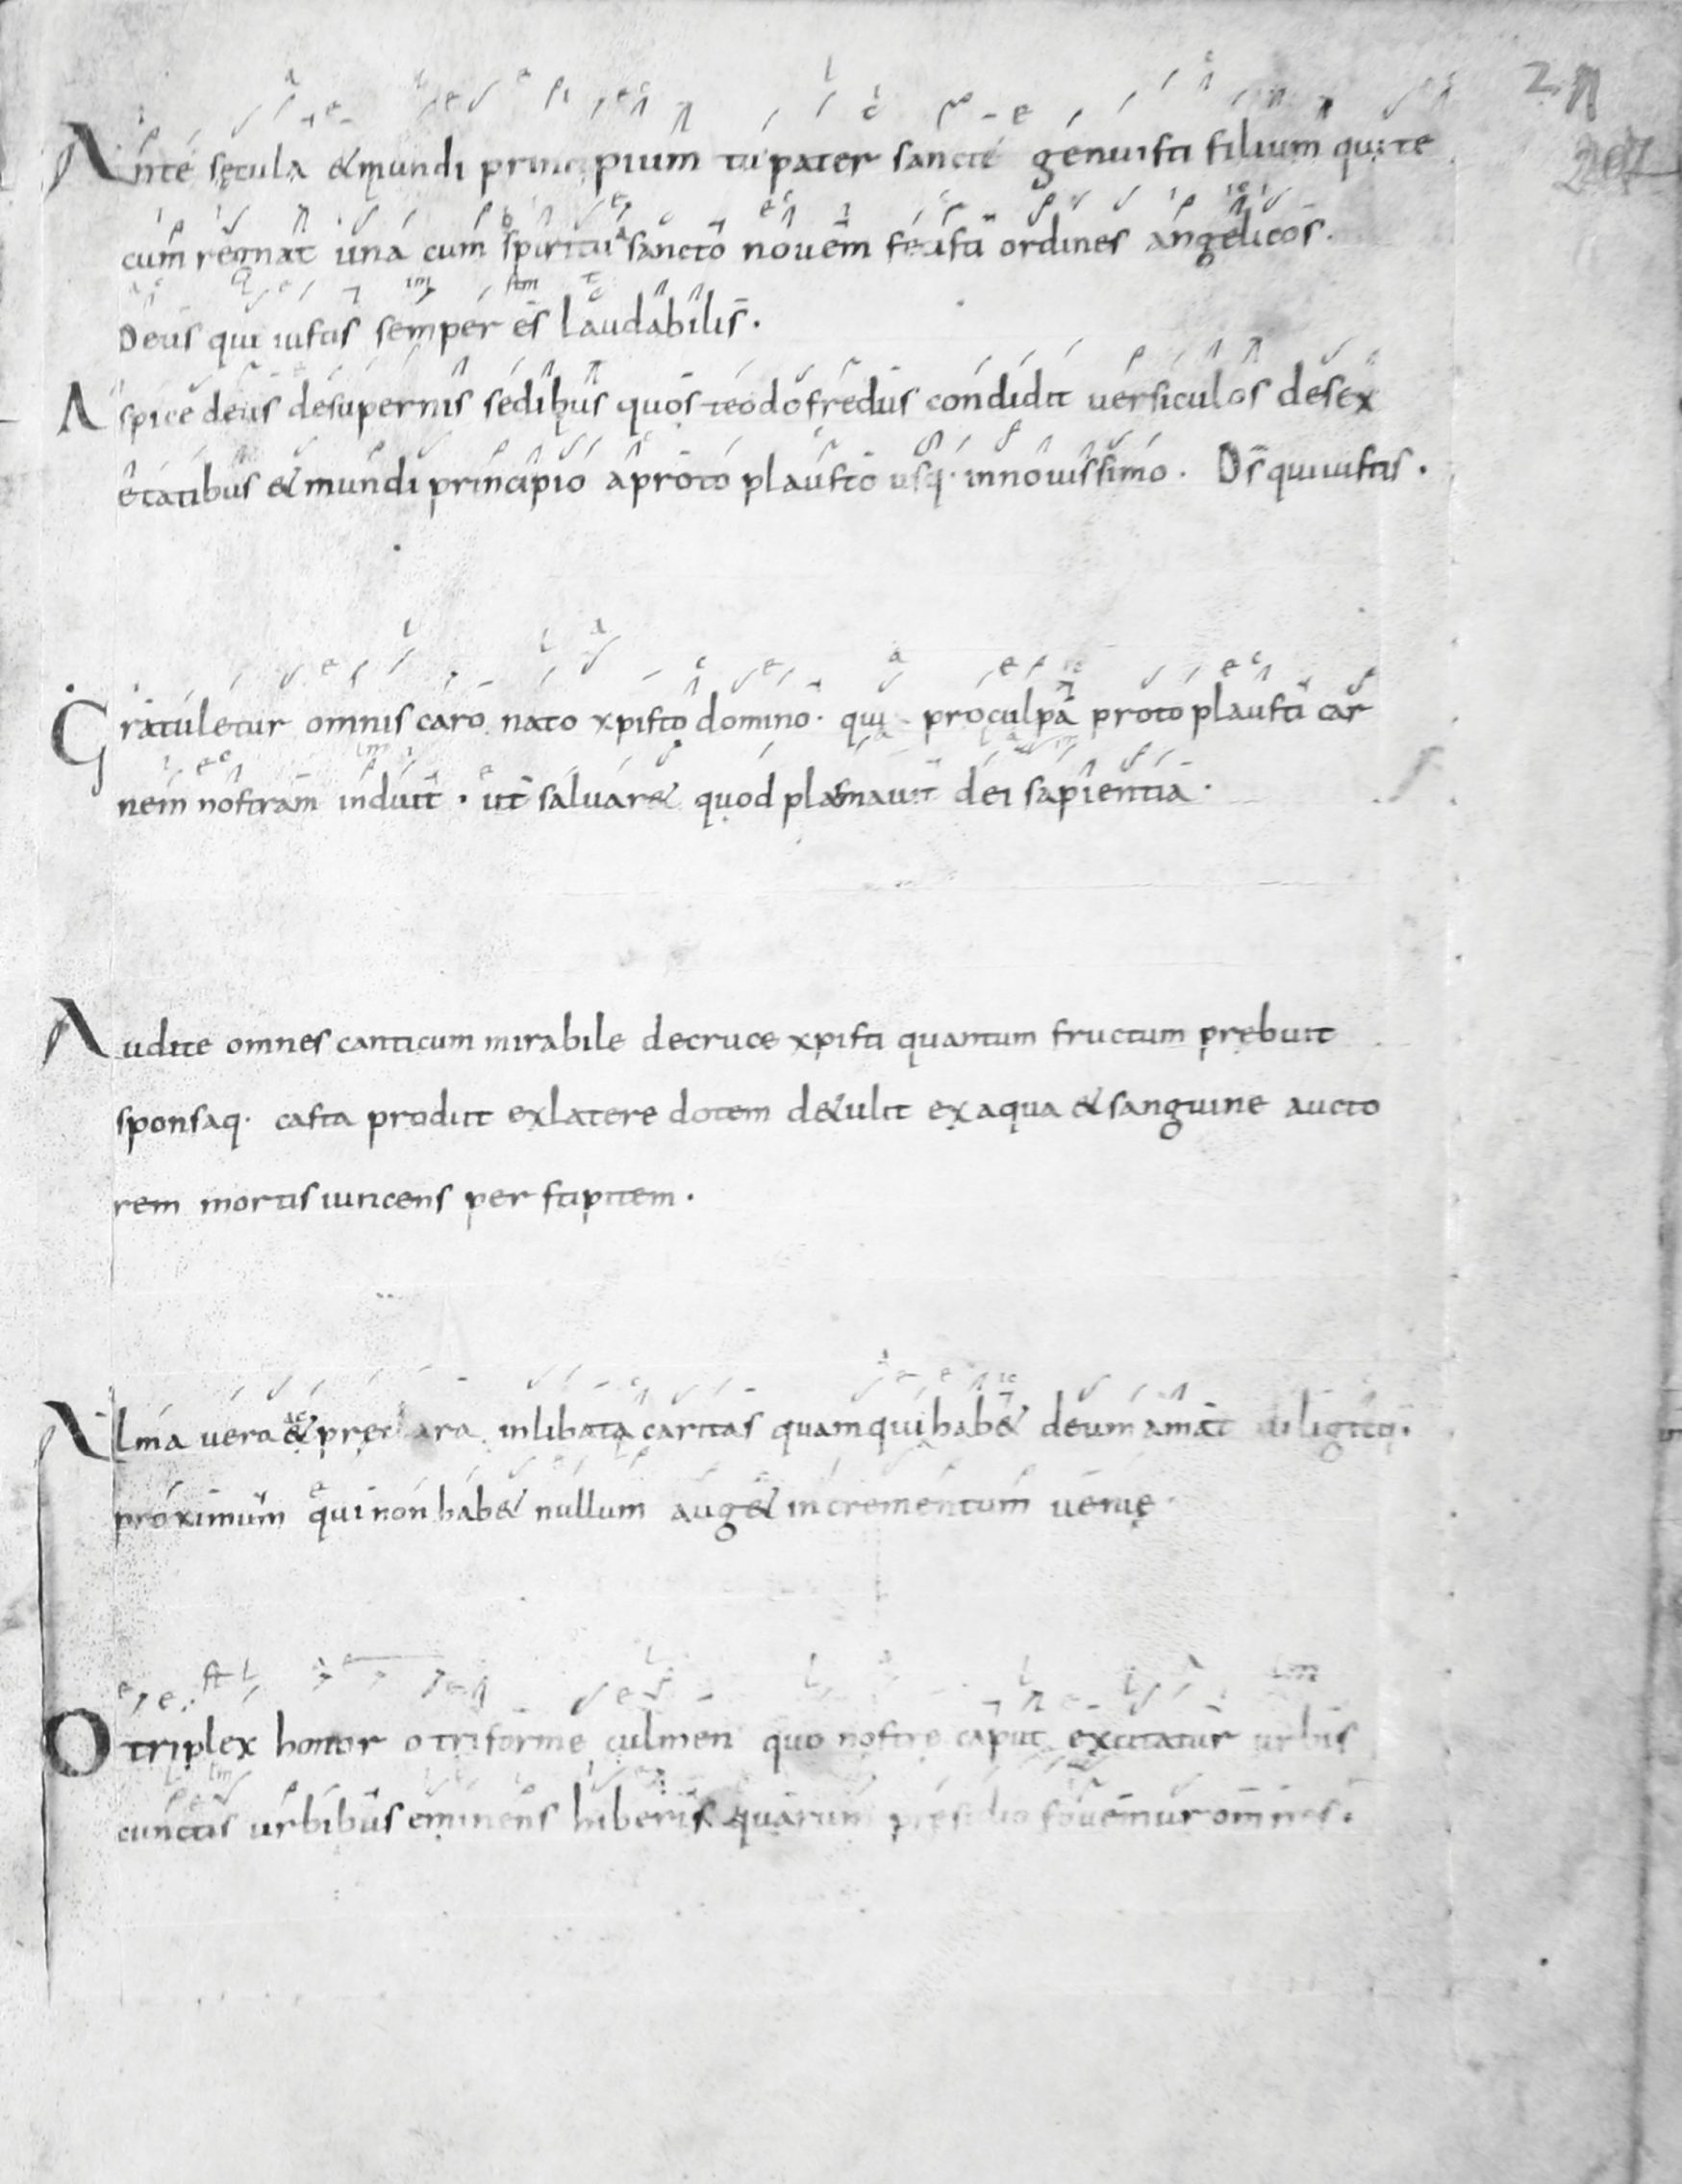 207
Ante sęcula & mundi principium tu pater sancte genuisti filium qui te
cum regnat una cum spiritu sancto novem fecisti ordines angelicos.
Deus qui iustus semper es laudabilis.
Aspice deus desupernis sedibus quos teodofredus condidit versiculos desex
etatibus & mundi principio aprotoplausto usq· innouissimo. Ds̄ qui iustus.
Gratuletur omnis caro nato xpisto domino· qui proculpa protoplausti car
nem nostram induit · ut saluar& quod plasmauit dei sapientia·
Audite omnes canticum mirabile decruce xpisti quantum fructum prębuit
sponsaq· casta prodiit exlatere dotem d&ulit ex aqua & sanguine aucto
rem mortis uincens per stipitem.
Alma uera & pręclara inlibata caritas quam qui hab& deum amat diligitq·
proximum qui non hab& nullum aug& incrementum uenię
O triplex honor o triforme culmen quo nostre caput excitatur urbis
cunctis urbibus eminens hiberis quarum presidio fouemur omnes.